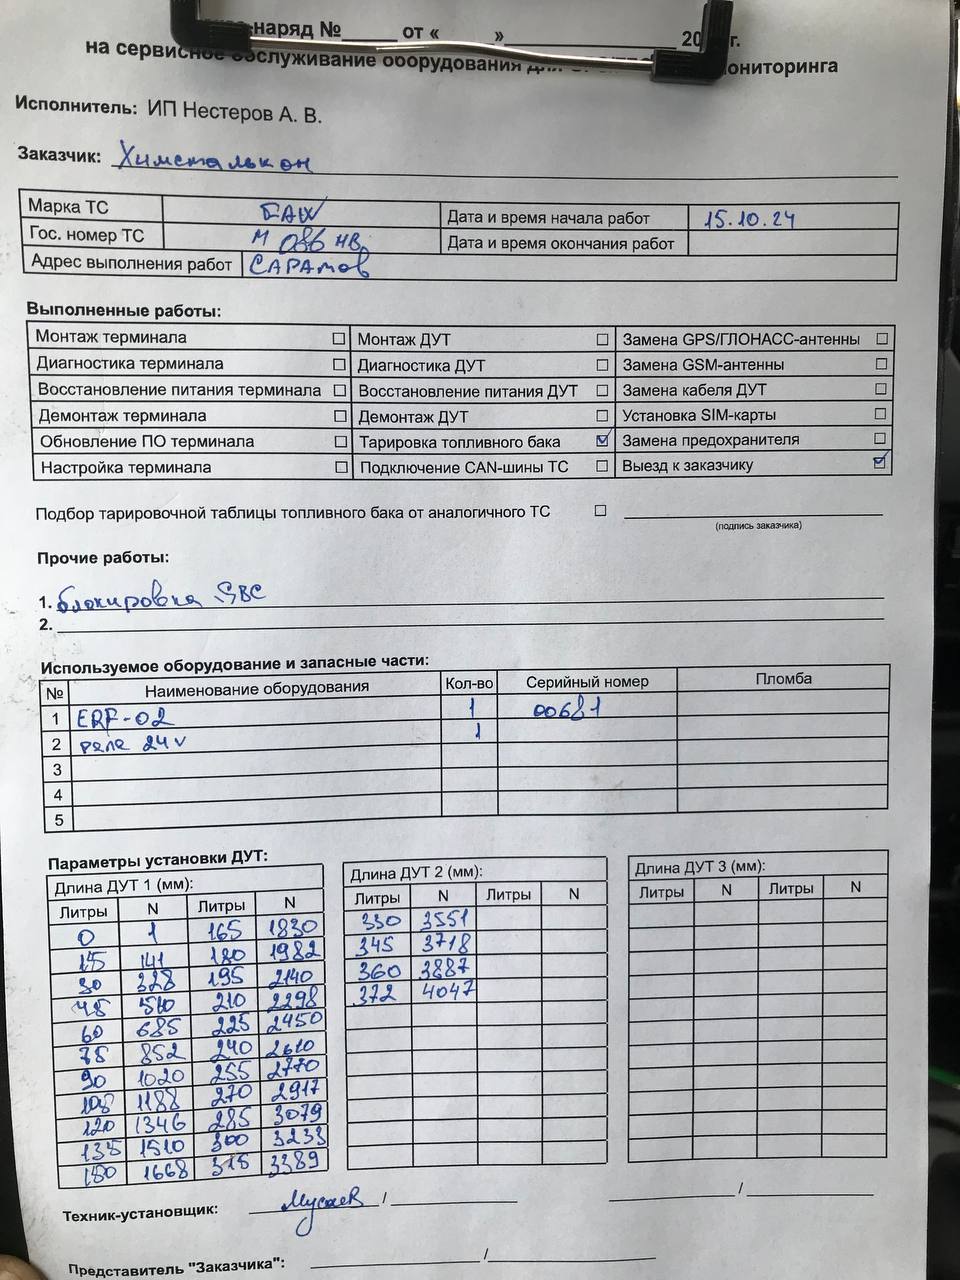 -наряд №_____ от «    »_______________ 20 г.
на сервисное обслуживание оборудования для ониторинга
Исполнитель: ИП Нестеров А. В.
Заказчик: Химстальком
Марка ТС FAW Дата и время начала работ 15.10.24
Гос. номер ТС М 086 НВ Дата и время окончания работ
Адрес выполнения работ САРАтов
Выполненные работы:
Монтаж терминала ☐ Монтаж ДУТ ☐ Замена GPS/ГЛОНАСС-антенны ☐
Диагностика терминала ☐ Диагностика ДУТ ☐ Замена GSM-антенны ☐
Восстановление питания терминала ☐ Восстановление питания ДУТ ☐ Замена кабеля ДУТ ☐
Демонтаж терминала ☐ Демонтаж ДУТ ☐ Установка SIM-карты ☐
Обновление ПО терминала ☐ Тарировка топливного бака ☑ Замена предохранителя ☐
Настройка терминала ☐ Подключение CAN-шины ТС ☐ Выезд к заказчику ☑
Подбор тарировочной таблицы топливного бака от аналогичного ТС ☐
(подпись заказчика)
Прочие работы:
1. блокировка ДВС
2.
Используемое оборудование и запасные части:
№ Наименование оборудования Кол-во Серийный номер Пломба
1 ERF-02 1 00681
2 реле 24v 1
3
4
5
Параметры установки ДУТ:
Длина ДУТ 1 (мм): Длина ДУТ 2 (мм): Длина ДУТ 3 (мм):
Литры N Литры N Литры N Литры N Литры N Литры N
0 1 165 1830 330 3551
15 141 180 1982 345 3718
30 328 195 2140 360 3887
45 510 210 2298 372 4047
60 685 225 2450
75 852 240 2610
90 1020 255 2770
105 1188 270 2917
120 1346 285 3079
135 1510 300 3233
150 1668 315 3389
Техник-установщик: Мусаев / /
Представитель "Заказчика": /